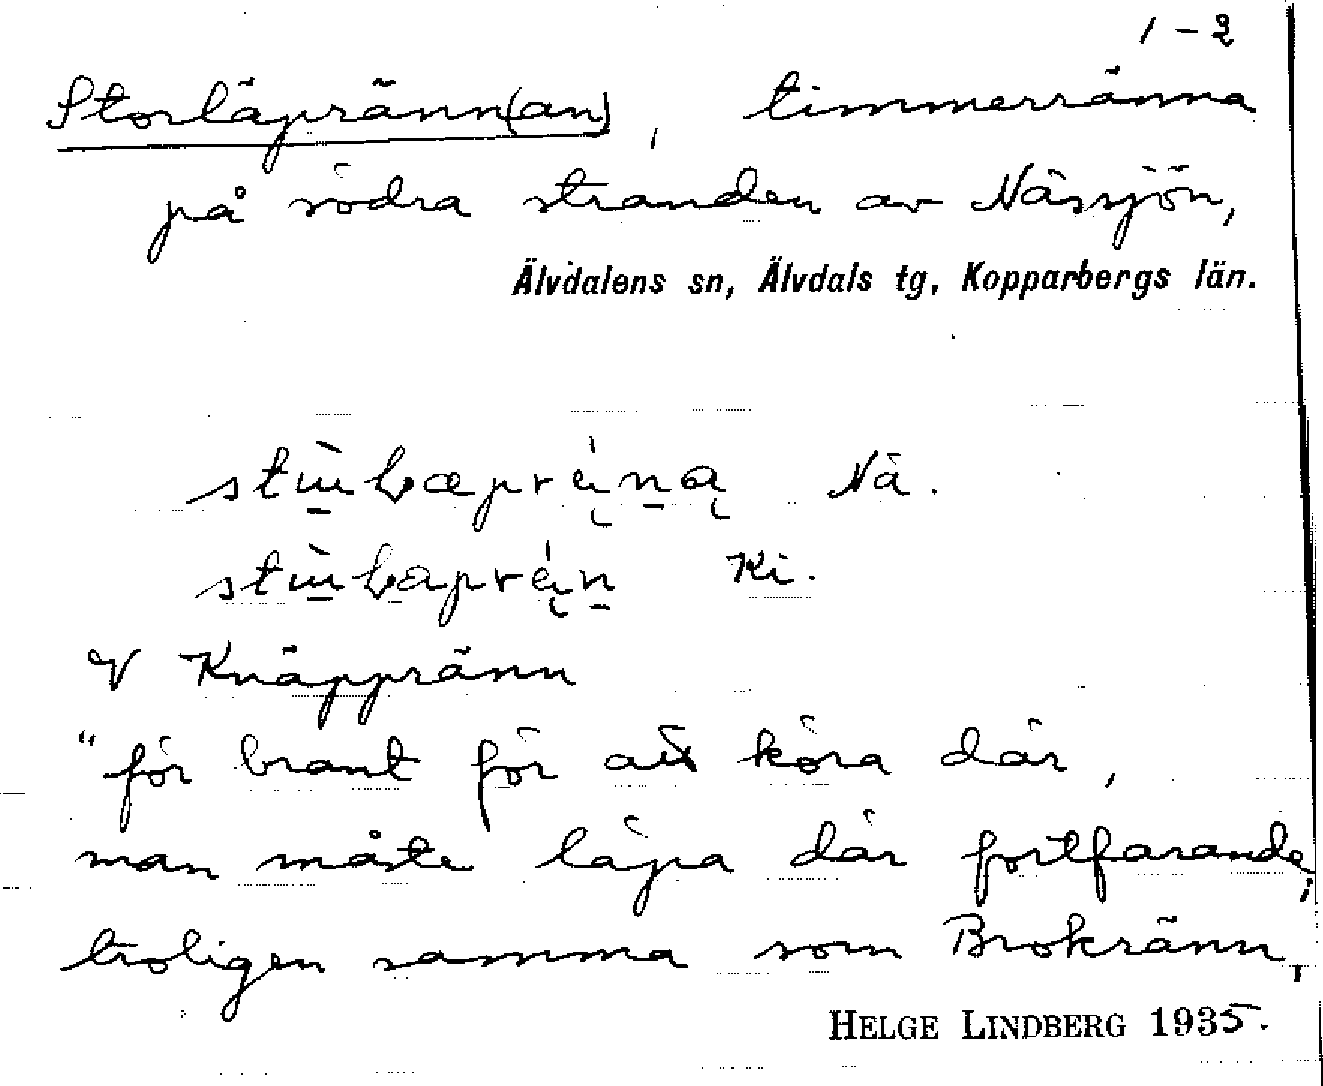 1-2
Storläpränn(an), timmerränna
på södra stranden av Nässjön,
Älvdalens sn, Älvdals tg, Kopparbergs län.
Nä.
Ki.
V Knäppränn
"för brant för att köra där,
man måste läpa där fortfarande;
troligen samma som Brokränn.
HELGE LINDBERG 1935.